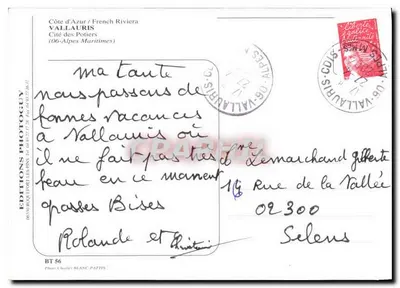 Côte d'Azur / French Riviera
VALLAURIS
Cité des Potiers
(06-Alpes Maritimes)
ma tante
nous passons de
bonnes vacances
a Vallauris où
il ne fait pas très
beau en ce moment
grosses Bises
Rolande et Christian
BT 56
EDITIONS PHOTOGUY
06-VALLAURIS
06-VALLAURIS-CDIS
ALPES MMES
Lemarchand gilberte
14 Rue de la Vallée
02300
Selens